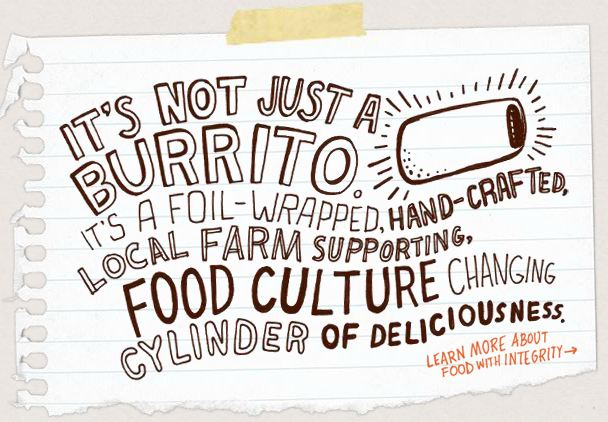 IT'S NOT JUST A
BURRITO.
IT'S A FOIL-WRAPPED, HAND-CRAFTED,
LOCAL FARM SUPPORTING,
FOOD CULTURE CHANGING
CYLINDER OF DELICIOUSNESS.
LEARN MORE ABOUT
FOOD WITH INTEGRITY→